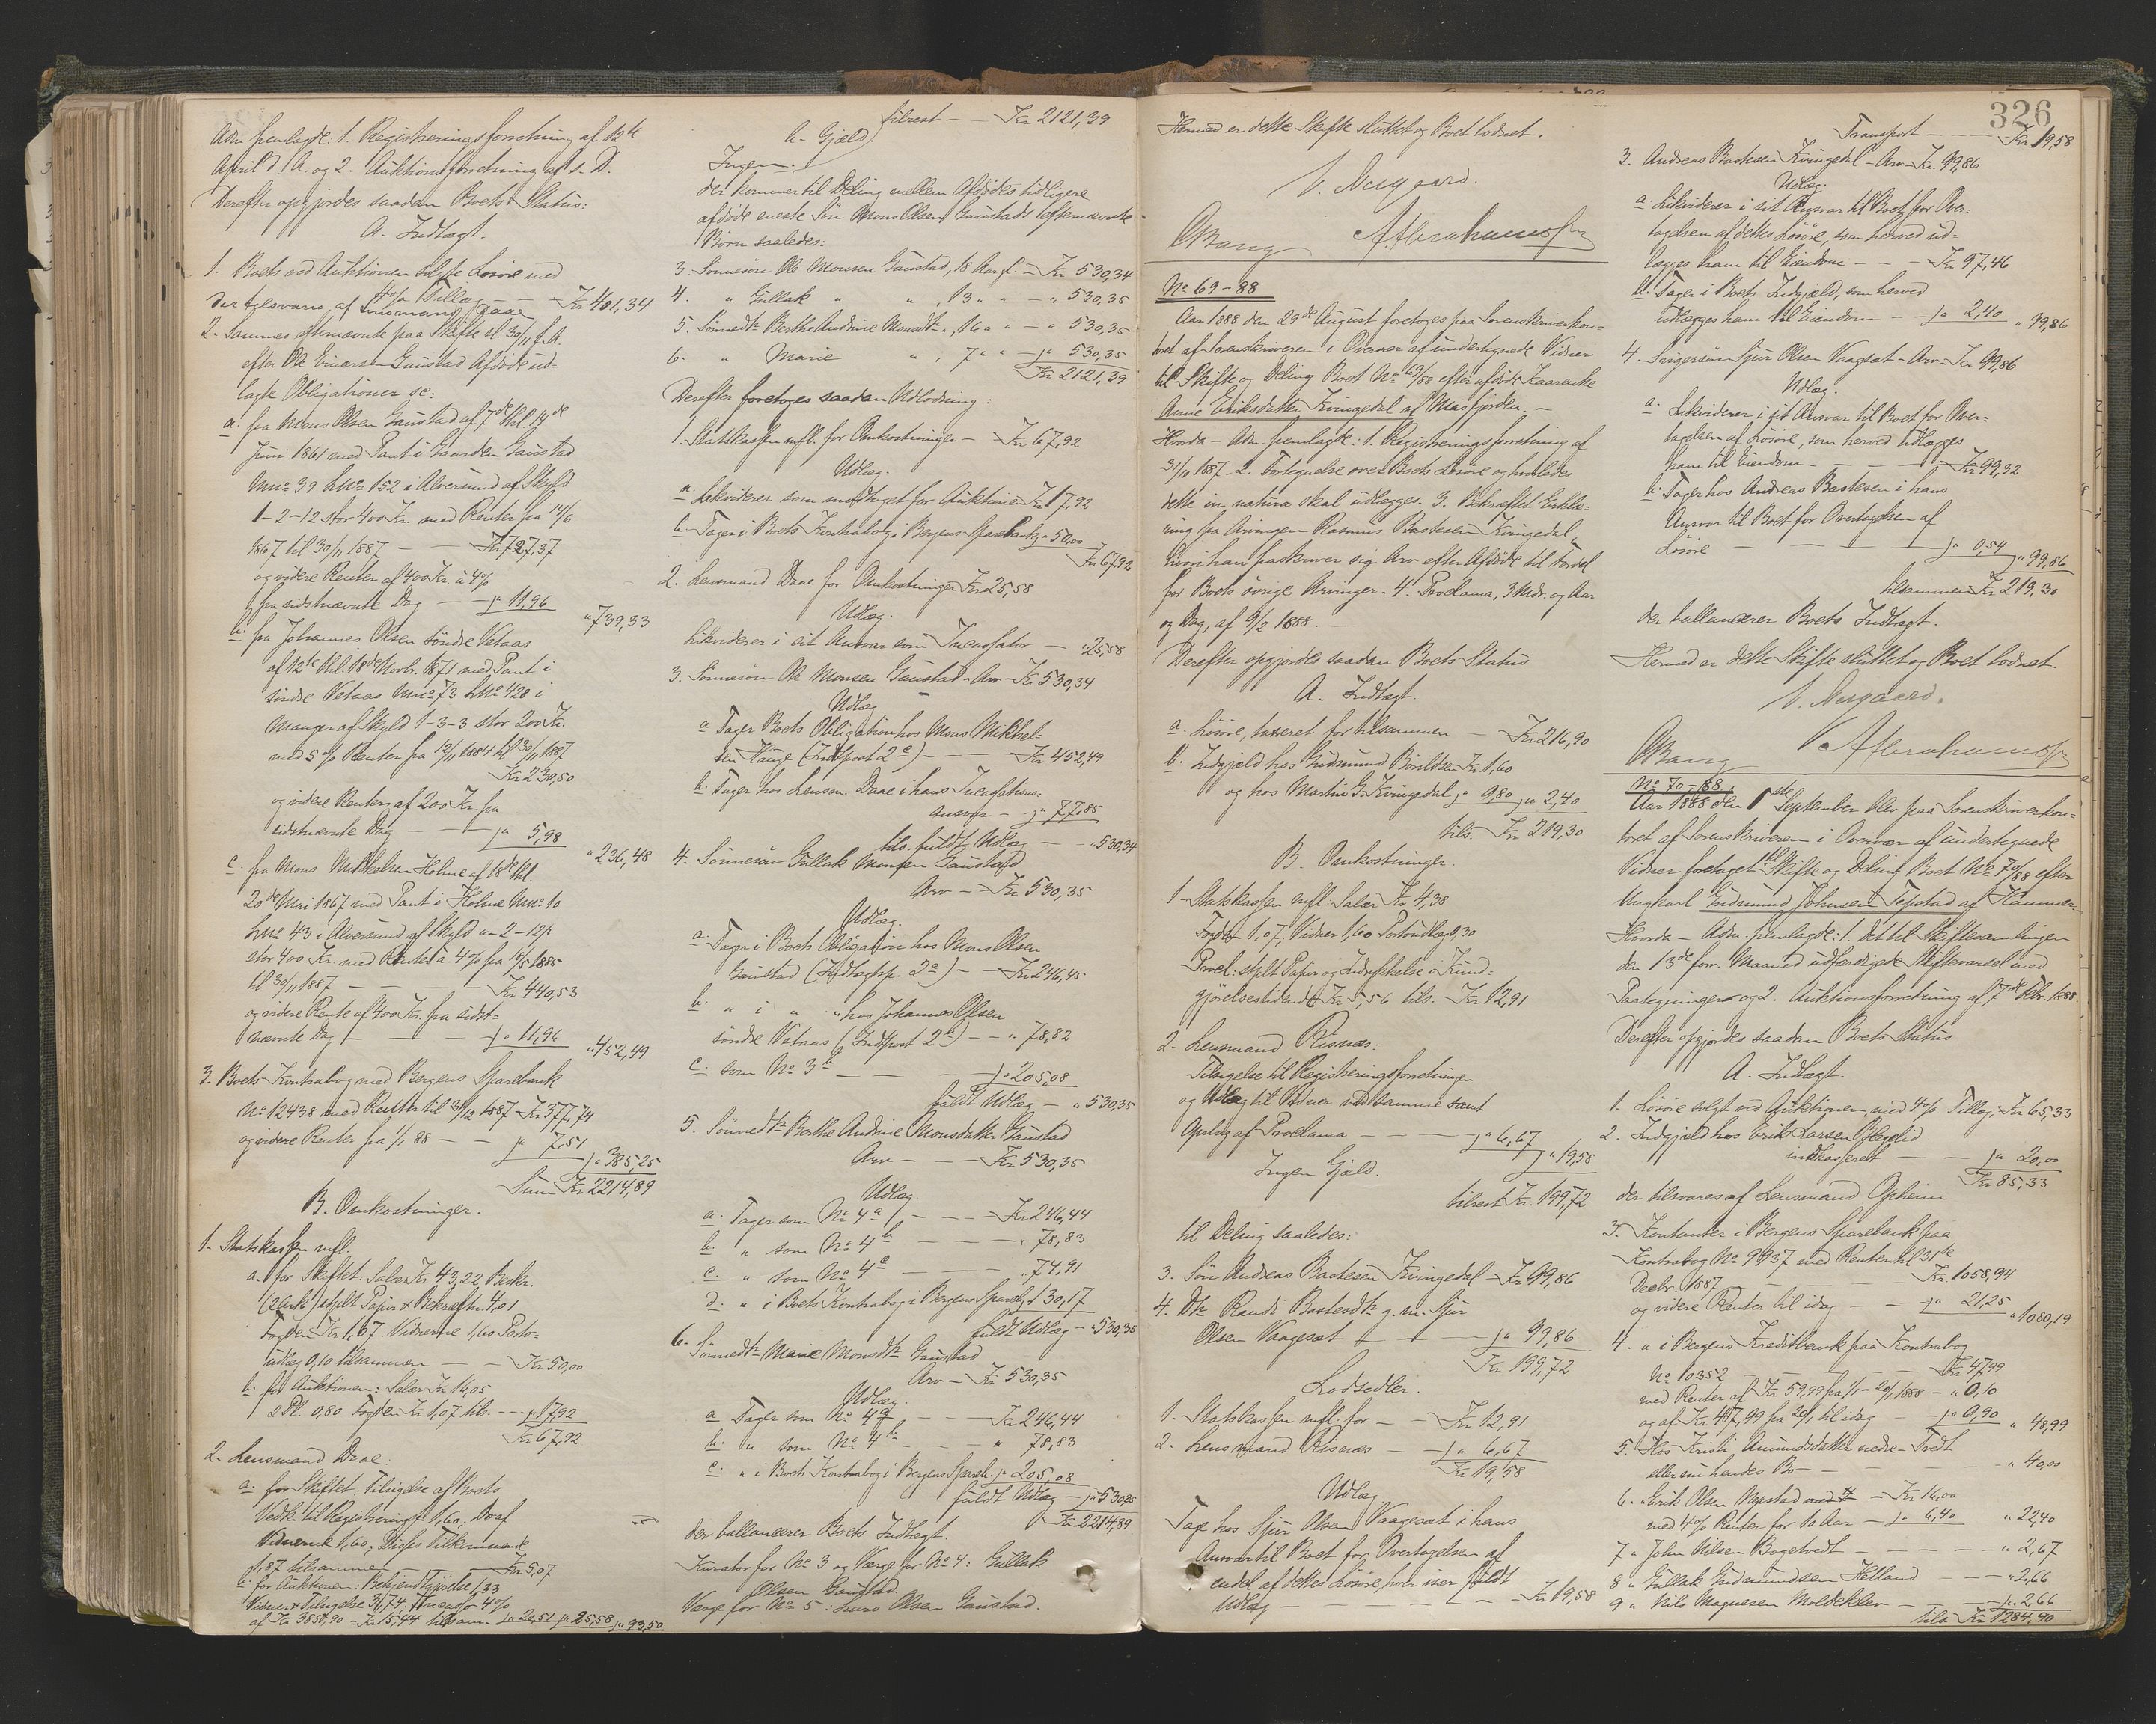 Adm. fremlagde: 1. Registreringsforretning af 12te
April d. A. og 2. Auktionsforretning af s. D.
Derefter opgjordes saadan Boets Status:
A. Indtægt.
1. Boets ved Auktionen solgte Løsøre med
4% Tillæg - - Kr 401,34
der tilsvares af Lensmand Daae
2. Sammes efternævnte paa Skifte sl. 30/11 f. A.
efter Ole Einarsen Gaustad Afdøde ud-
lagte Obligationer sc:
a. fra Mons Olsen Gaustad af 7de thl. 14de
Juni 1861 med Pant i Gaarden Gaustad
Mno 39 Lno 152 i Alversund af Skyld
1-2-12 stor 400 Kr. med Renter fra 14/6
1867 til 30/11 1887 - - Kr 727,37
og videre Renter af 400 Kr. à 4%
fra sidstnævnte Dag - - " 11,96
" 739,33
b. fra Johannes Olsen søndre Vetaas
af 12te thl. 18de Novbr. 1871 med Pant i
søndre Vetaas Mno 73 Lno 428 i
Manger af Skyld 1-3-3 stor 200 Kr.
med 5% Renter fra 12/11 1884 til 30/11 1887
Kr 230,50
og videre Renter af 200 Kr. fra
sidstnævnte Dag - - " 5,98
" 236,48
c. fra Mons Mikkelsen Holme af 18de thl.
20de Mai 1867 med Pant i Holme Mno 10
Lno 43 i Alversund af Skyld
stor 400 Kr. med Renter à 4% fra 1885
til 30/11 1887 - - Kr 440,53
og videre Rente af 400 Kr. fra sidst-
nævnte Dag - - " 11,96
" 452,49
3. Boets Kontrabog med Bergens Sparebank
No 12438 med Renter til 31/12 1887 - Kr 377,74
og videre Renter fra 1/1 88 - - " 7,51
" 385,25
Sum Kr 2214,89
B. Omkostninger.
1. Statskassen mfl.
a. for Skiftet: Salær Kr 43,22 Beskr.
(2 Ark) stplt Papir & Bekræftn. 4,01
Fogden Kr 1,07 Vidnerne 1,60 Porto-
udlæg 0,10 tilsammen - - Kr 50,00
b. for Auktionen: Salær Kr 16,05
2 Pl. 0,80 Fogden Kr 1,07 tils. - - " 17,92
Kr 67,92
2. Lensmand Daae:
a. for Skiftet: Tilsigelse af Boets
Vedk. til Registreringsf. 1,60; Do af
Vidnerne 1,60; Disses Tilkommende
1,87 tilsammen - Kr 5,07
b. for Auktionen: Bekjendtgjørelse 1,33
Vidners Tilsigelse 3,74, Incassos 4%
af Kr 385,90 = Kr 15,44 tilsam. " 20,51 " 25,58 " 93,50
tilrest - - Kr 2121,39
C. Gjæld.
Ingen.
der kommer til Deling mellem Afdødes tidligere
afdøde eneste Søn Mons Olsen Gaustads efternævnte
Børn saaledes:
3. Sønnesøn Ole Monsen Gaustad, 18 Aar gl. - Kr 530,34
4. " Gullak " " , 13 " " - " 530,35
5. Sønnedtr Berthe Andrine Monsdtr ", 16 " " - " 530,35
6. " Marie " ", 7 " " - " 530,35
Kr 2121,39
Derefter foretoges saadan Udlodning:
1. Statskassen mfl. for Omkostninger - Kr 67,92
Udlæg.
a. Likviderer som modtaget for Auktionen Kr 17,92
b. Tager i Boets Kontrabog i Bergens Sparebank " 50,00
Kr 67,92
2. Lensmand Daae for Omkostninger Kr 25,58
Udlæg.
Likviderer i sit Ansvar som Incassator - " 25,58
3. Sønnesøn Ole Monsen Gaustad - Arv - Kr 530,34
Udlæg
a Tager Boets Obligation hos Mons Mikkel-
sen Hauge (Indtpost 2c) - - Kr 452,49
b. Tager hos Lensm. Daae i hans Incassations-
ansvar - " 77,85
tils. fuldt Udlæg - " 530,34
4. Sønnesøn Gullak Monsen Gaustad
Arv - - Kr 530,35
Udlæg.
a. Tager i Boets Obligation hos Mons Olsen
Gaustad (Indtægtsp. 2a) - - Kr 246,45
b. " i " " hos Johannes Olsen
søndre Vetaas (Indtpost 2b) - - " 78,82
c. som No 3b - - " 205,08
fuldt Udlæg - " 530,35
5. Sønnedtr Berthe Andrine Monsdatter Gaustad
Arv - - Kr 530,35
Udlæg
a. Tager som No 4a - - Kr 246,44
b. " som No 4b - - " 78,83
c. " som No 4c - - " 74,91
d. " i Boets Kontrabog i Bergens Spareb. " 130,17
fuldt Udlæg - " 530,35
6. Sønnedtr Marie Monsdtr Gaustad
Arv - Kr 530,35
Udlæg.
a Tager som No 4a - - Kr 246,44
b. " som No 4b - - " 78,83
c. " i Boets Kontrabog i Bergens Spareb. " 205,08
fuldt Udlæg - " 530,35
Kr 2214,89
der ballancerer Boets Indtægt.
Kurator for No 3 og Værge for No 4: Gullak
Olsen Gaustad.
Værge for No 5: Lars Olsen Gaustad.
326
Hermed er dette Skifte sluttet og Boet lodnet.
V. Neergaard.
CBang AAbrahamsen
No 69-88
Aar 1888 den 29de August foretoges paa Sorenskriverkon-
toret af Sorenskriveren i Overvær af undertegnede Vidner
til Skifte og Deling Boet No 69/88 efter afdøde Kaarenke
Anne Eriksdatter Kvingedal af Masfjorden. -
Hvorda - Adm. fremlagde: 1. Registreringsforretning af
31/10 1887. 2. Fortegnelse over Boets Løsøre og hvorledes
dette in natura skal udlægges. 3. Bekræftet Erklæ-
ring fra Arvingen Rasmus Bastesen Kvingedal,
hvori han fraskriver sig Arv efter Afdøde til Fordel
for Boets øvrige Arvinger. 4. Proclama, 3 Mdr. og Aar
og Dag, af 9/2 1888. -
Derefter opgjordes saadan Boets Status
A. Indtægt.
a. Løsøre, taxeret for tilsammen - Kr 216,90
b. Indgjæld hos Gudmund Kr 1,60
og hos Martin G. Kvingedal " 0,80 " 2,40
tils. Kr 219,30
B. Omkostninger.
1. Statskassen mfl. Salær Kr 4,38
Fogden 1,07, Vidner 1,60 Portoudlæg 0,30
Procl: stplt Papir og Indrykkelse i Kund-
gjørelsestidende Kr 5,56 tils. Kr 12,91
2. Lensmand Risnæs:
Tilsigelse til Registreringsforretningen
og Udlæg til Vidner ved samme samt
Opslag af Proclama - - " 6,67
" 19,58
Ingen Gjæld.
tilrest Kr. 199,72
til Deling saaledes:
3. Søn Andreas Bastesen Kvingedal - Kr 99,86
4. Dtr Randi Bastesdtr g. m. Sjur
Olsen Vaagesæt - - " 99,86
Kr 199,72
Lodsedler.
1. Statskassen mfl. for - - Kr 12,91
2. Lensmand Risnæs - - " 6,67
Kr 19,58
Udlæg
Tage hos Sjur Olsen Vaagesæt i hans
Ansvar til Boet for Overtagelsen af
endel af dettes Løsøre, hver især fuldt
Udlæg - - Kr 19,58
Transport - - - Kr 19,58
3. Andreas Bastesen Kvingedal - Arv - Kr. 99,86
Udlæg.
a. Likviderer i sit Ansvar til Boet for Over-
tagelsen af dettes Løsøre, som herved ud-
lægges ham til Eiendom - - - Kr 97,46
b. Tager i Boets Indgjæld, som herved
udlægges ham til Eiendom - " 2,40 " 99,86
4. Svigersøn Sjur Olsen Vaagesæt - Arv - Kr 99,86
Udlæg.
a. Likviderer i sit Ansvar til Boet for Over-
tagelsen af Løsøre, som herved udlægges
ham til Eiendom - - - Kr 99,32
b. Tager hos Andreas Bastesen i hans
Ansvar til Boet for Overtagelsen af
Løsøre - - " 0,54 " 99,86
tilsammen Kr 219,30
der ballancerer Boets Indtægt.
Hermed er dette Skifte sluttet og Boet lodnet.
V. Neergaard.
CBang AAbrahamsen
No 70-88
Aar 1888 den 1ste September blev paa Sorenskriverkon-
toret af Sorenskriveren i Overvær af undertegnede
Vidner foretaget til Skifte og Deling Boet No 70/88 efter
Ungkarl Gudmund Johnsen Tepstad af Hammer.
Hvorda - Adm. fremlagde: 1. det til Skiftesamlingen
den 13de forr. Maaned udfærdigede Skiftevarsel med
Paategninger og 2. Auktionsforretning af 7de Febr. 1888.
Derefter opgjordes saadan Boets Status
A. Indtægt.
1. Løsøre solgt ved Auktionen med 4% Tillæg - Kr 65,33
2. Indgjæld hos Erik Larsen
indkasseret - - " 20,00
Kr 85,33
der tilsvares af Lensmand Opheim
3. Kontanter i Bergens Sparebank paa
Kontrabog No 9937 med Renter til 31te
Decbr. 1887 - - Kr. 1058,94
og videre Renter til idag - " 21,25
" 1080,19
4. " i Bergens Kreditbank paa Kontrabog
No 10352 - - Kr 47,99
med Renter af Kr 59,99 fra 1/1 - 20/1 1888 - " 0,10
og af Kr 47,99 fra 20/1 til idag " 0,90 " 48,99
5. Hos Kristi Amundsdatter nedre Tvedt
eller i hendes Bo - - " 40,00
6. " Erik Olsen - Kr 16,00
med 4% Renter for 10 Aar - " 6,40 " 22,40
7 " John Nilsen Bogetvedt - - " 2,67
8 " Gullak Gudmundsen Helland - - " 2,66
9 " Nils Magnesen Moldeklev - - " 2,66
tils. Kr 1284,90